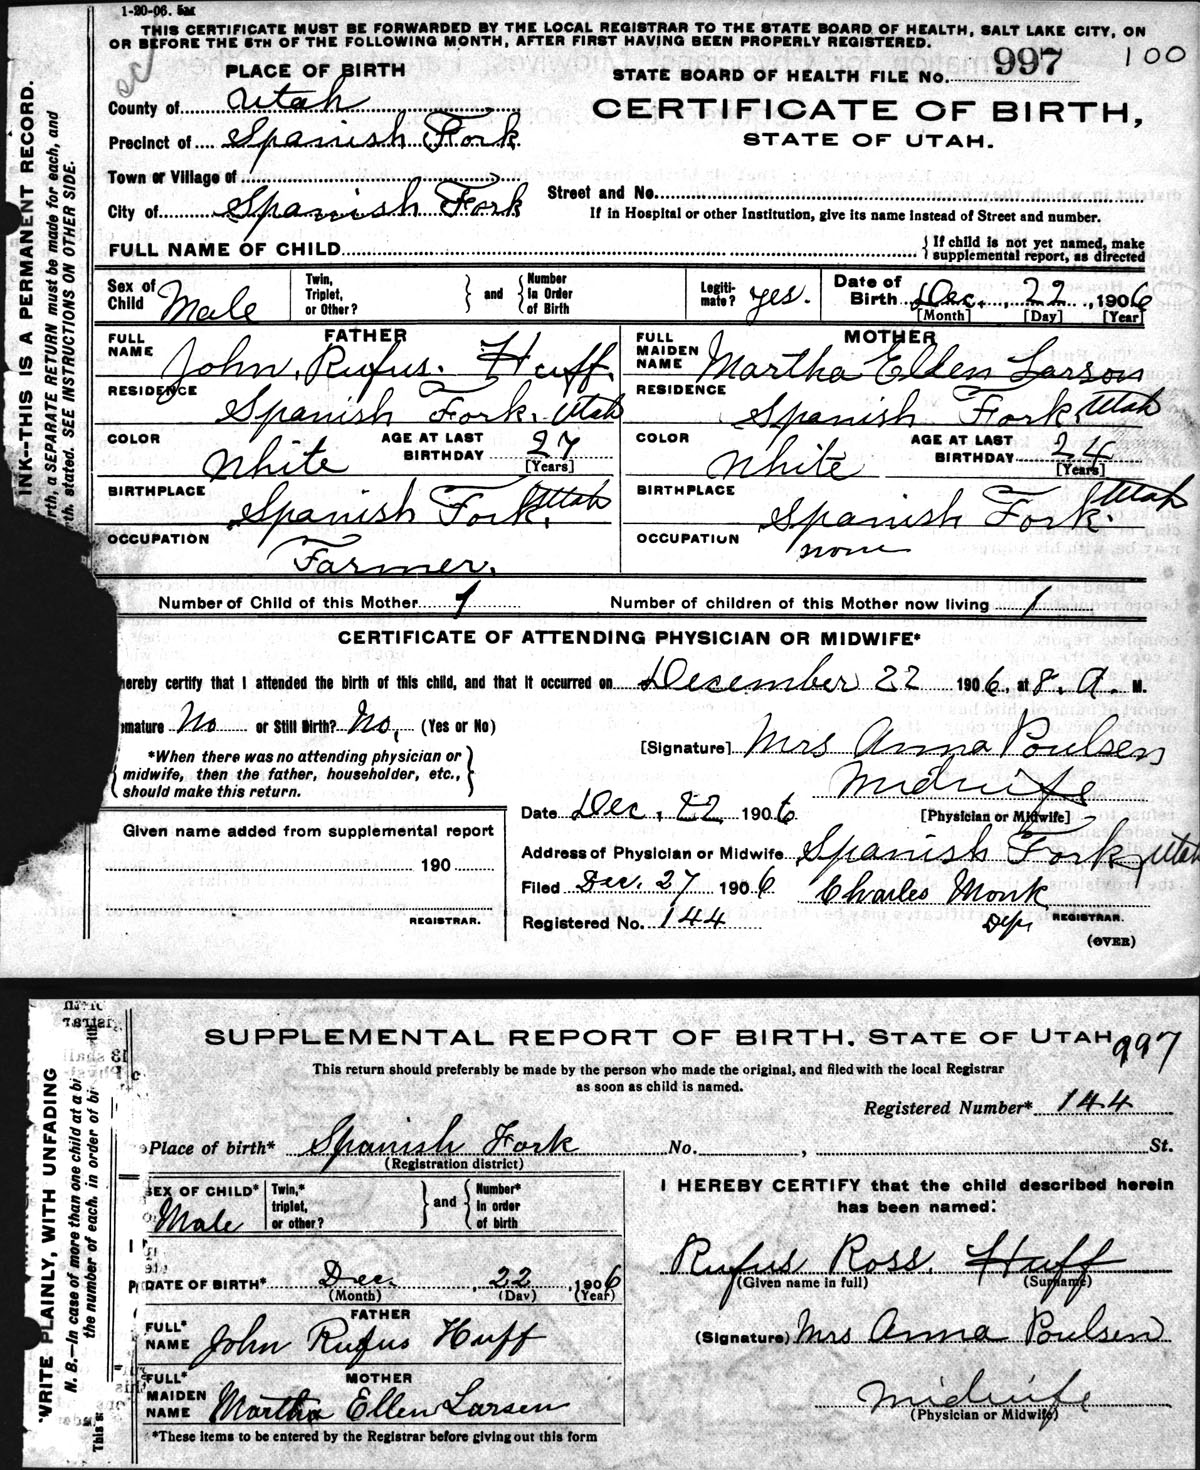 1-20-06. 5M
THIS CERTIFICATE MUST BE FORWARDED BY THE LOCAL REGISTRAR TO THE STATE BOARD OF HEALTH, SALT LAKE CITY, ON
OR BEFORE THE 5TH OF THE FOLLOWING MONTH, AFTER FIRST HAVING BEEN PROPERLY REGISTERED.
100
PLACE OF BIRTH
STATE BOARD OF HEALTH FILE No. 997
County of Utah
CERTIFICATE OF BIRTH,
Precinct of Spanish Fork
STATE OF UTAH.
Town or Village of
Street and No.
City of Spanish Fork
If in Hospital or other Institution, give its name instead of Street and number.
FULL NAME OF CHILD
If child is not yet named, make supplemental report, as directed
Sex of Child Male
Twin, Triplet, or Other? and Number in Order of Birth
Legitimate? yes.
Date of Birth Dec. 22, 1906
[Month] [Day] [Year]
FATHER
FULL NAME John. Rufus. Huff.
RESIDENCE Spanish Fork. Utah
COLOR White AGE AT LAST BIRTHDAY 27 [Years]
BIRTHPLACE Spanish Fork. Utah
OCCUPATION Farmer.
MOTHER
FULL MAIDEN NAME Martha Ellen Larson
RESIDENCE Spanish Fork. Utah
COLOR White AGE AT LAST BIRTHDAY 24 [Years]
BIRTHPLACE Spanish Fork. Utah
OCCUPATION none
Number of Child of this Mother 1 Number of children of this Mother now living 1
CERTIFICATE OF ATTENDING PHYSICIAN OR MIDWIFE*
hereby certify that I attended the birth of this child, and that it occurred on December 22 1906, at 8. A. M.
mature No or Still Birth? No, (Yes or No)
*When there was no attending physician or
midwife, then the father, householder, etc.,
should make this return.
[Signature] Mrs Anna Poulsen
Midwife
[Physician or Midwife]
Date Dec. 22 1906
Given name added from supplemental report
190
REGISTRAR.
Address of Physician or Midwife Spanish Fork, Utah
Filed Dec. 27 1906 Charles Monk
Registered No. 144 Dep. REGISTRAR.
(OVER)
INK--THIS IS A PERMANENT RECORD.
rth, a SEPARATE RETURN must be made for each, and
th. stated. SEE INSTRUCTIONS ON OTHER SIDE.
SUPPLEMENTAL REPORT OF BIRTH. STATE OF UTAH
997
This return should preferably be made by the person who made the original, and filed with the local Registrar
as soon as child is named.
Registered Number* 144
Place of birth* Spanish Fork No. , St.
(Registration district)
SEX OF CHILD* Male
Twin,* triplet, or other? and Number* in order of birth
DATE OF BIRTH* Dec. 22, 1906
(Month) (Day) (Year)
FATHER
FULL* NAME John Rufus Huff
MOTHER
FULL* MAIDEN NAME Martha Ellen Larsen
*These items to be entered by the Registrar before giving out this form
I HEREBY CERTIFY that the child described herein
has been named:
Rufus Ross. Huff
(Given name in full) (Surname)
(Signature) Mrs Anna Poulsen
Midwife
(Physician or Midwife)
WRITE PLAINLY, WITH UNFADING
N. B.—In case of more than one child at a bi
the number of each, in order of bi
This s